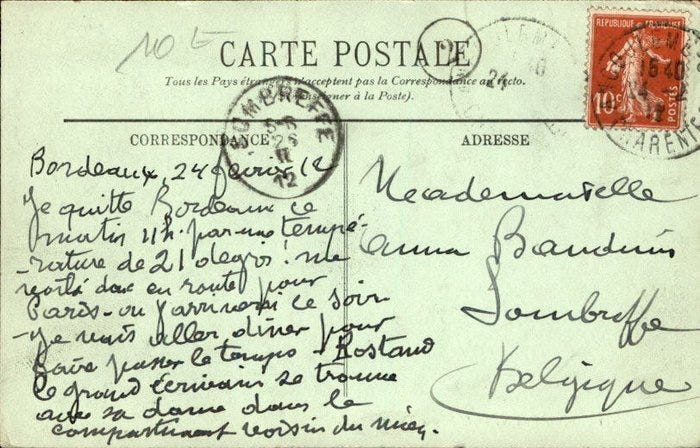 10 E
CARTE POSTALE
Tous les Pays étrangers n'acceptent pas la Correspondance au recto.
(Se renseigner à la Poste).
CORRESPONDANCE
Bordeaux, 24 février 12
Je quitte Bordeaux ce
matin 11h. par une tempé-
-rature de 21 degrés! me
voilà donc en route pour
Paris - où j'arriverai ce soir
- Je vais aller dîner pour
faire passer le temps - Rostand
le grand écrivain se trouve
avec sa dame dans le
compartiment voisin du mien.
ADRESSE
Mademoiselle
Anna Bauduin
Sombreffe
Belgique
SOMBREFFE
25
II
12
24
REPUBLIQUE FRANÇAISE
10c
POSTES
40